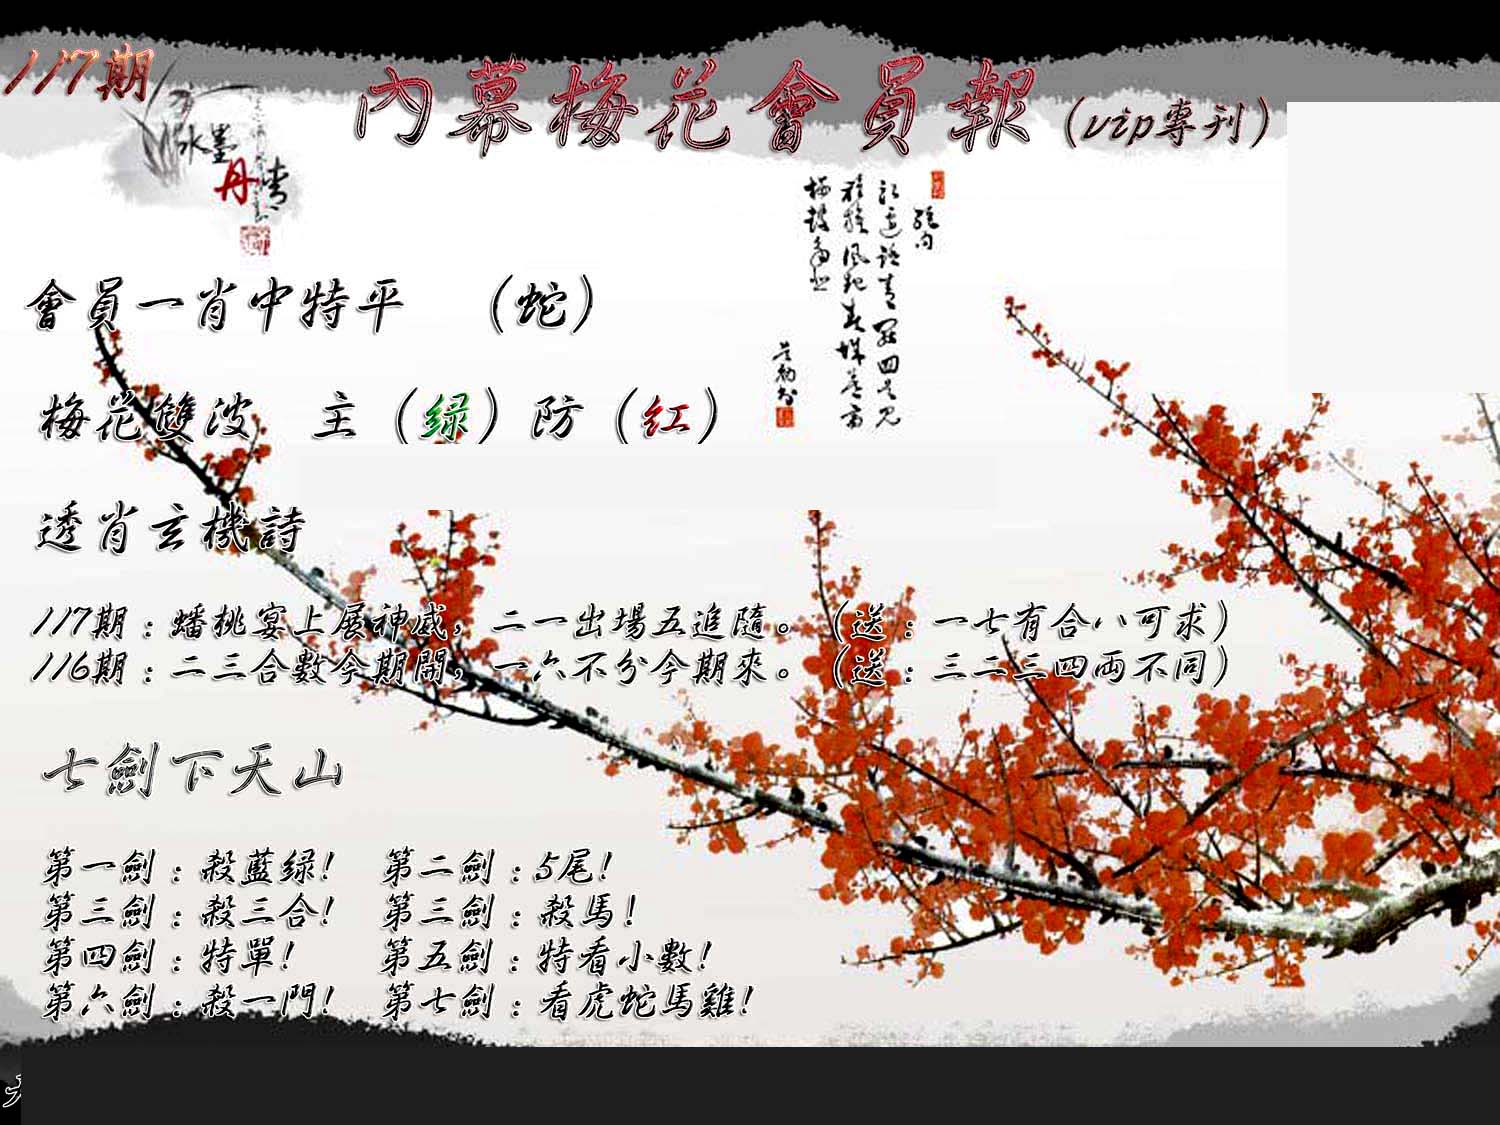 117期
內幕梅花會員報（vip專刊）
水墨
丹青
會員一肖中特平 （蛇）
梅花雙波 主（绿）防（红）
透肖玄機詩
117期：蟠桃宴上展神威，二一出場五追隨。（送：一七有合八可求）
116期：二三合數今期開，一六不分今期來。（送：三二三四兩不同）
七劍下天山
第一劍：殺藍绿！ 第二劍：5尾！
第三劍：殺三合！ 第三劍：殺馬！
第四劍：特單！ 第五劍：特看小數！
第六劍：殺一門！ 第七劍：看虎蛇馬雞！